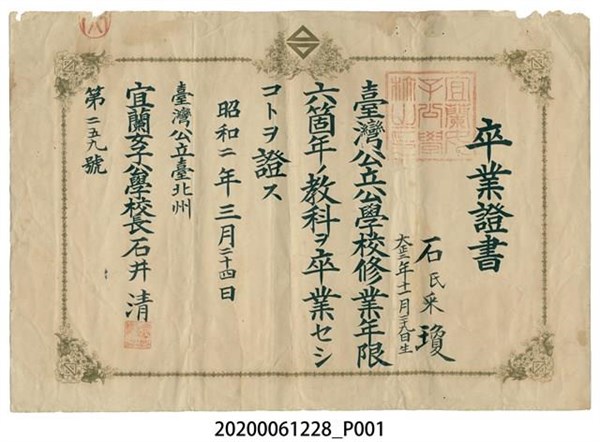 卒業證書
石氏采瓊
大正三年十一月二九日生
臺灣公立公學校修業年限
六箇年ノ教科ヲ卒業セシ
コトヲ證ス
昭和二年三月二十四日
臺灣公立臺北州
宜蘭女子公學校長石井清
第二五九號
20200061228_P001